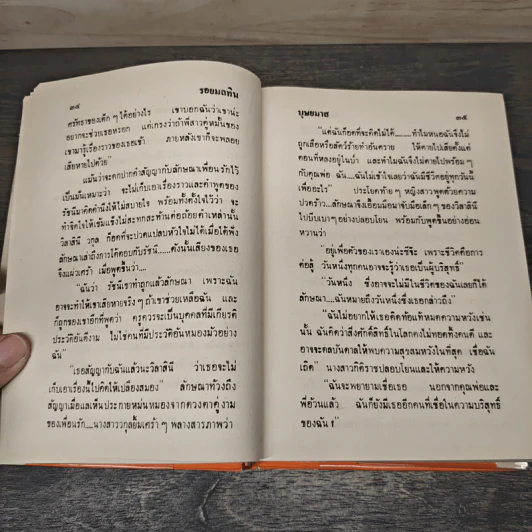 ๓๔
รอยมลทิน
ศรัทธาของเด็ก ๆ ได้อย่างไร เขาบอกฉันว่าเขาน่ะ
อยากจะช่วยเธอหรอก แต่เกรงว่าถ้าพี่สาวคู่หมั้นของ
เขามารู้เรื่องราวของเธอเข้า ภายหลังเขาก็จะพลอย
เสียหายไปด้วย”
แม้นว่าจะตกปากคำสัญญากับลักษณาเพื่อนรักไว้
เป็นมั่นเหมาะว่า จะไม่เก็บเอาเรื่องราวและคำพูดของ
รัชนีมาคิดคำนึงให้ไม่สบายใจ พร้อมทั้งตั้งใจไว้ว่า จะ
ทำจิตใจให้เข้มแข็งไม่สะทกสะท้านต่อถ้อยคำเหล่านั้น
วิลาสินี วกุล ก็อดที่จะปวดแปลบหัวใจไม่ได้เมื่อได้ฟัง
ลักษณาเล่าถึงการโต้ตอบกับรัชนี......ดังนั้นเสียงของเธอ
จึงแผ่วเศร้า เมื่อพูดขึ้นว่า....
“ฉันว่า รัชนีเขาทำถูกแล้วลักษณา เพราะฉัน
อาจจะทำให้เขาเสียหายจริง ๆ ถ้าเขาช่วยเหลือฉัน และ
ก็ถูกของเขาอีกที่พูดว่า ครูควรจะเป็นบุคคลที่มีเกียรติ
ประวัติอันดีงาม ไม่ใช่คนที่มีประวัติอันหมองมัวอย่าง
ฉัน”
“เธอสัญญากับฉันแล้วนะวิลาสินี ว่าเธอจะไม่
เก็บเอาเรื่องนี้ไปคิดให้เปลืองสมอง” ลักษณาทวงถึง
สัญญาเมื่อแลเห็นประกายหม่นหมองจากดวงตาคู่งาม
ของเพื่อนรัก....นางสาววกุลยิ้มเศร้า ๆ พลางสารภาพว่า
บุษยมาส
๓๕
“แต่ฉันก็อดที่จะคิดไม่ได้......ทำไมหนอฉันจึงไม่
ถูกเสือหรือสัตว์ร้ายทำอันตราย ให้ตายไปเสียตั้งแต่
ตอนที่หลงอยู่ในป่า และทำไมฉันจึงไม่ตายไปพร้อม ๆ
กับคุณพ่อ ฉัน....ฉันไม่เข้าใจเลยว่าฉันมีชีวิตอยู่ทุกวันนี้
เพื่ออะไร” ประโยคท้าย ๆ หญิงสาวพูดด้วยความ
ปวดร้าว ลักษณาจึงเอื้อมมือมาจับมือเล็ก ๆ ของวิลาสินี
ไปบีบเบาๆอย่างปลอบโยน พร้อมกับพูดขึ้นอย่างอ่อน
หวานว่า
“อยู่เพื่อตัวของเราเองน่ะซีจ๊ะ เพราะชีวิตคือการ
ต่อสู้ วันหนึ่งทุกคนอาจจะรู้ว่าเธอเป็นผู้บริสุทธิ์”
“วันหนึ่ง ซึ่งอาจจะไม่มีในชีวิตของฉันเลยก็ได้
ลักษณา....ฉันหมายถึงวันหนึ่งซึ่งเธอกล่าวถึง”
“ฉันไม่อยากให้เธอคิดท้อแท้หมดความหวังเช่น
นั้น ฉันคิดว่าสิ่งศักดิ์สิทธิ์ในโลกคงไม่ทอดทิ้งคนดี และ
อาจจะดลบันดาลให้พบความสุขสมหวังในที่สุด เชื่อฉัน
เถิด” นางสาวภัคิราชปลอบโยนและให้ความหวัง
“ฉันจะพยายามเชื่อเธอ นอกจากคุณพ่อและ
พี่อ้วนแล้ว ฉันก็ยังมีเธออีกคนที่เชื่อในความบริสุทธิ์
ของฉัน !”